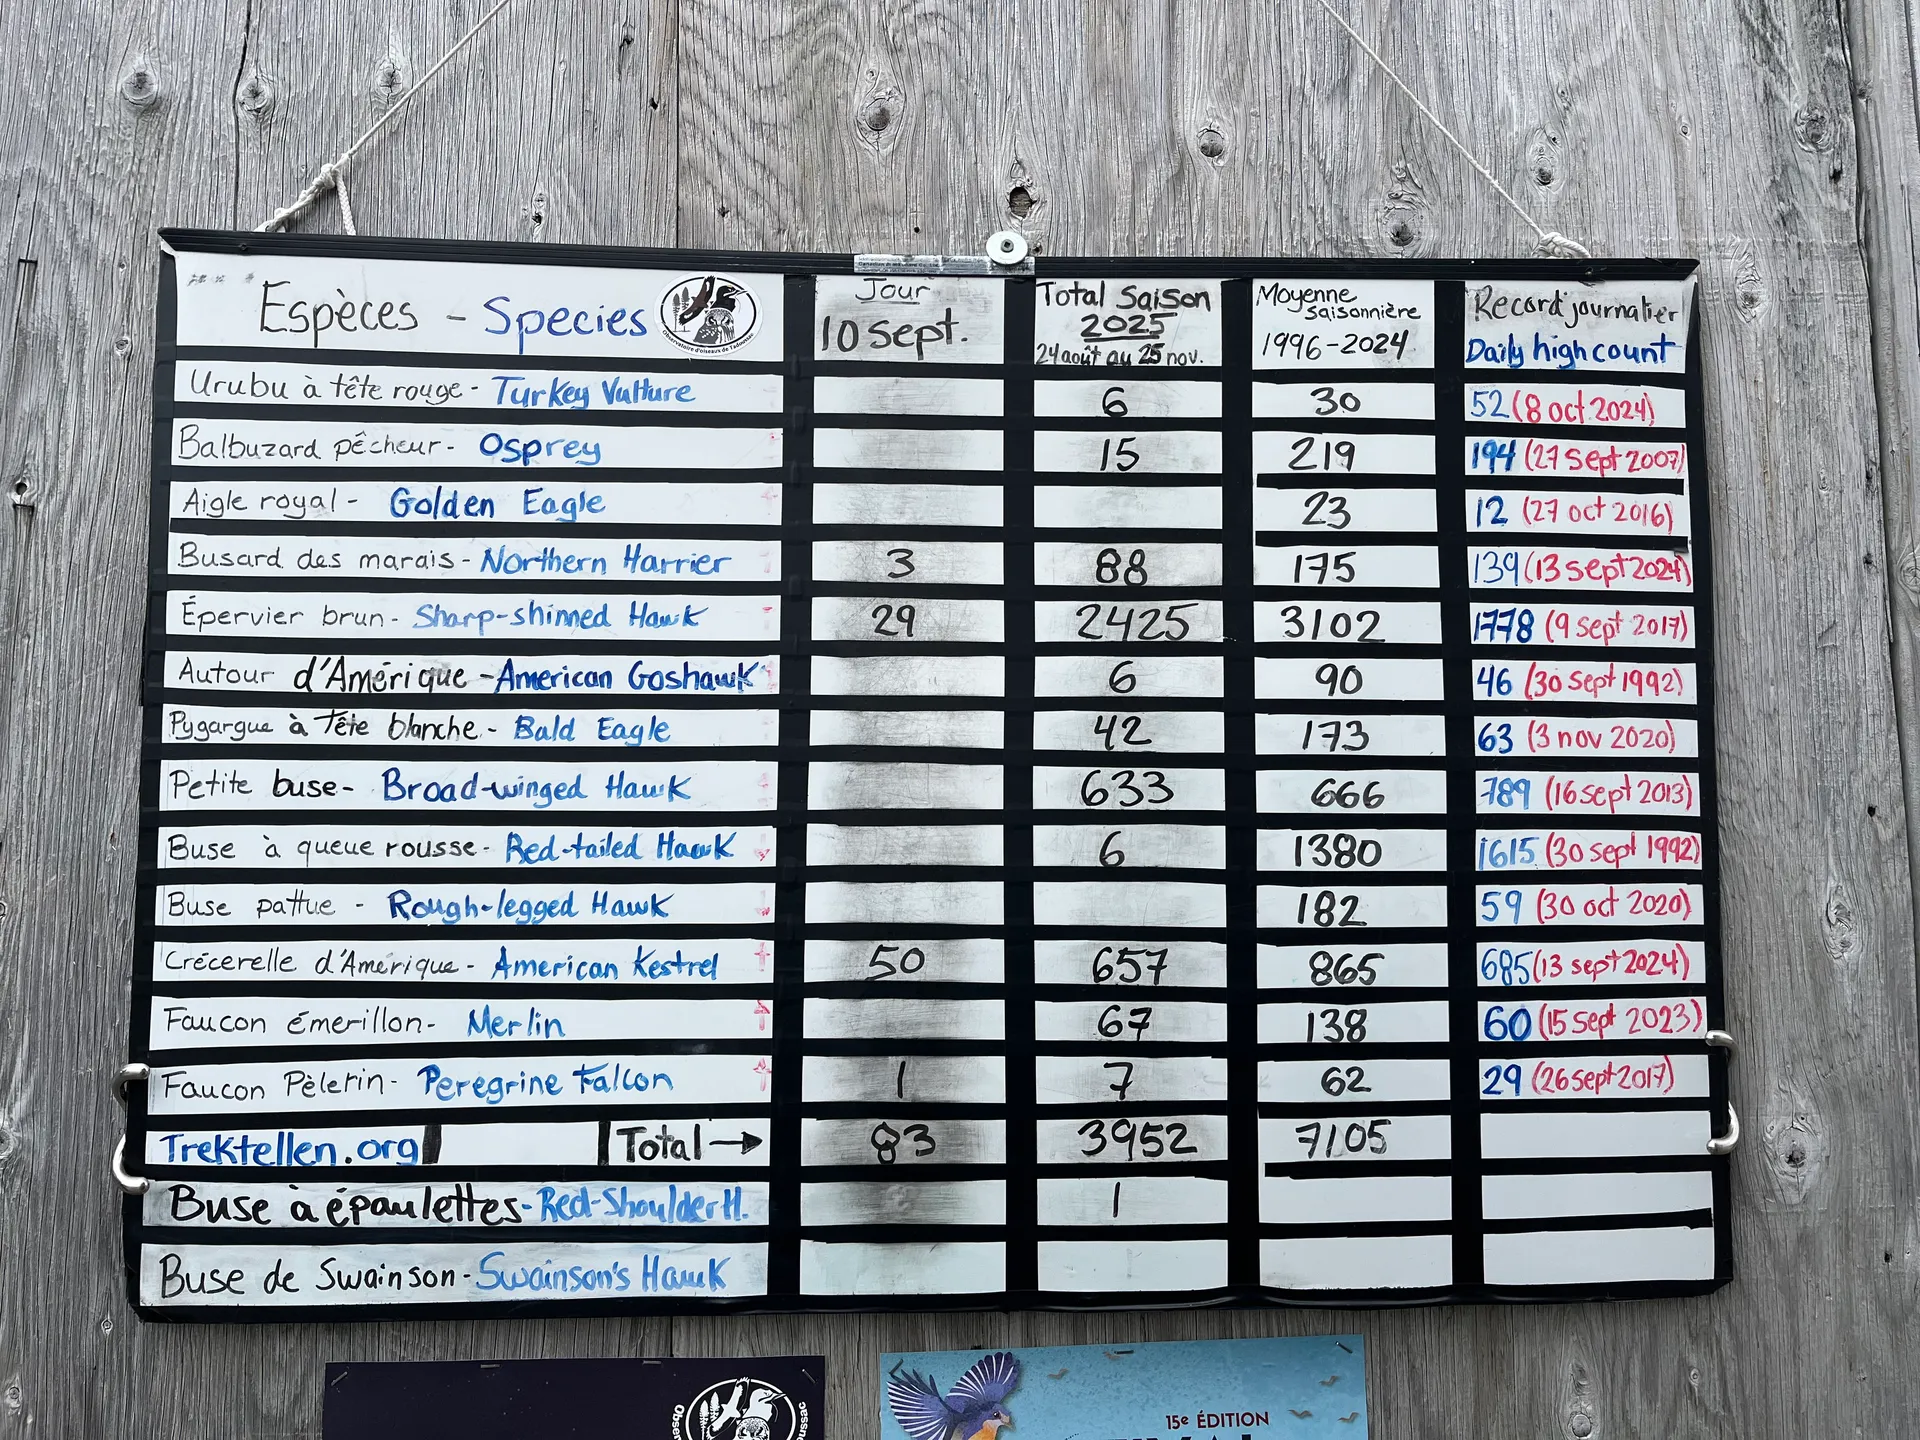 Espèces - Species
Observatoire d'oiseaux de Tadoussac
Jour
10 sept.
Total Saison
2025
24 août au 25 nov.
Moyenne
saisonnière
1996-2024
Record journalier
Daily high count
Urubu à tête rouge - Turkey Vulture 6 30 52 (8 oct 2024)
Balbuzard pêcheur - Osprey 15 219 194 (27 sept 2007)
Aigle royal - Golden Eagle 23 12 (27 oct 2016)
Busard des marais - Northern Harrier 3 88 175 139 (13 sept 2024)
Épervier brun - Sharp-shinned Hawk 29 2425 3102 1778 (9 sept 2017)
Autour d'Amérique - American Goshawk 6 90 46 (30 sept 1992)
Pygargue à tête blanche - Bald Eagle 42 173 63 (3 nov 2020)
Petite buse - Broad-winged Hawk 633 666 789 (16 sept 2013)
Buse à queue rousse - Red-tailed Hawk 6 1380 1615 (30 sept 1992)
Buse pattue - Rough-legged Hawk 182 59 (30 oct 2020)
Crécerelle d'Amérique - American Kestrel 50 657 865 685 (13 sept 2024)
Faucon émerillon - Merlin 67 138 60 (15 sept 2023)
Faucon Pèlerin - Peregrine Falcon 1 7 62 29 (26 sept 2017)
Trektellen.org Total → 83 3952 7105
Buse à épaulettes - Red-Shoulder H. 1
Buse de Swainson - Swainson's Hawk
15e ÉDITION